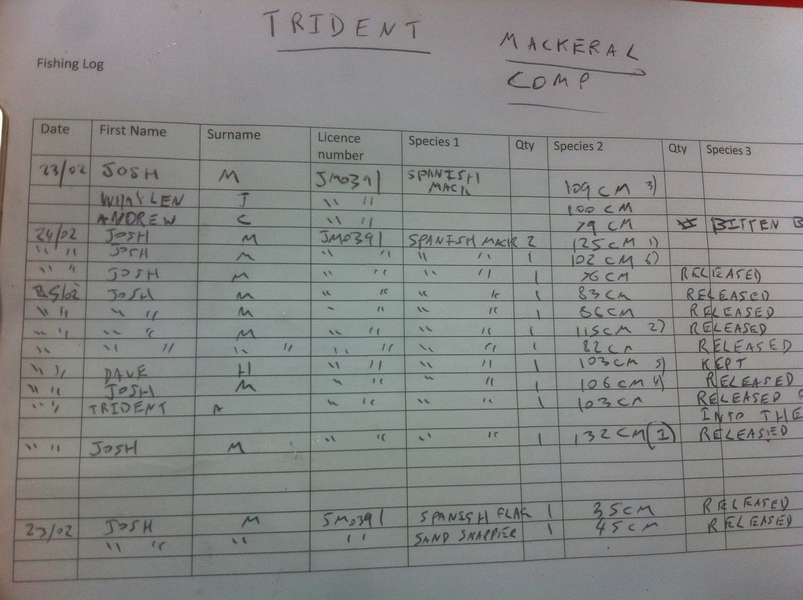 TRIDENT
MACKERAL
COMP
Fishing Log
Date First Name Surname Licence number Species 1 Qty Species 2 Qty Species 3
23/02 JOSH M JM0391 SPANISH MACK 109 CM 3)
WHAYLEN J " " 100 CM
ANDREW C " " 79 CM BITTEN B
24/02 JOSH M JM0391 SPANISH MACK 2 125 CM 1)
" " JOSH M " " " " 1 102 CM 6)
" " JOSH M " " " " 1 76 CM RELEASED
25/02 JOSH M " " " " 1 83 CM RELEASED
" " " " M " " " " 1 86 CM RELEASED
" " " " M " " " " 1 115 CM 2) RELEASED
" " " " " " " " " " 1 82 CM RELEASED
" " DAVE H " " " " 1 103 CM 5) KEPT
" " JOSH M " " " " 1 106 CM 4) RELEASED
" " TRIDENT A " " " " 1 103 CM RELEASED
INTO THE
" " JOSH M " " " " 1 132 CM (1) RELEASED
23/02 JOSH M JM0391 SPANISH FLAG 1 35CM RELEASED
" " " " " " SAND SNAPPER 1 45CM RELEASED